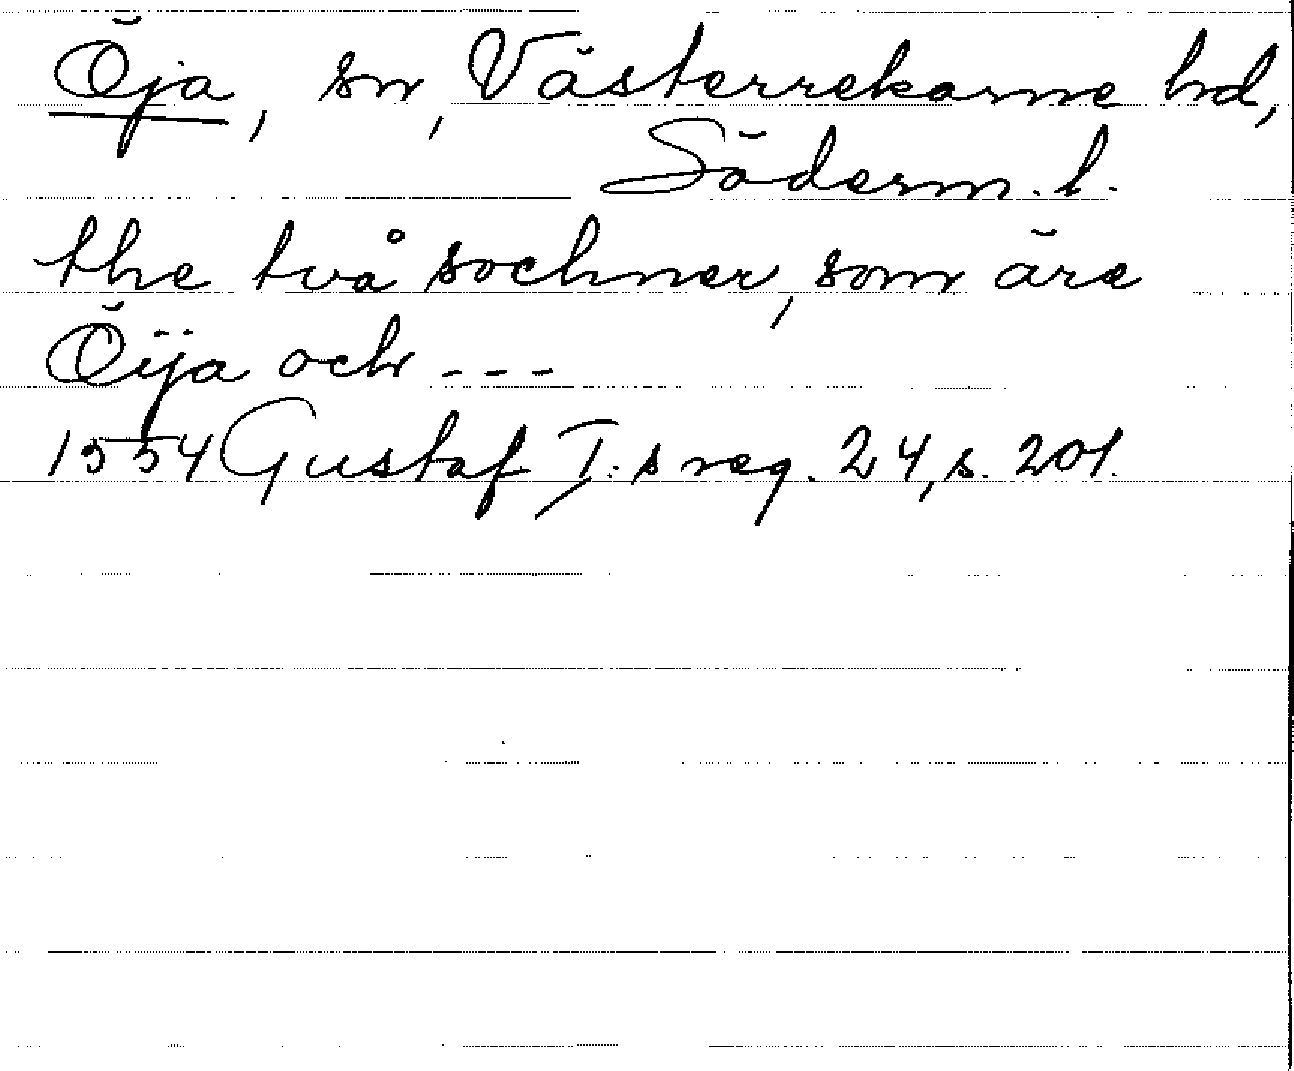 Öja, sn, Västerrekarne hd,
Söderm. l.
the två sochner, som äre
Öÿja och ---
1554 Gustaf I:s reg. 24, s. 201.